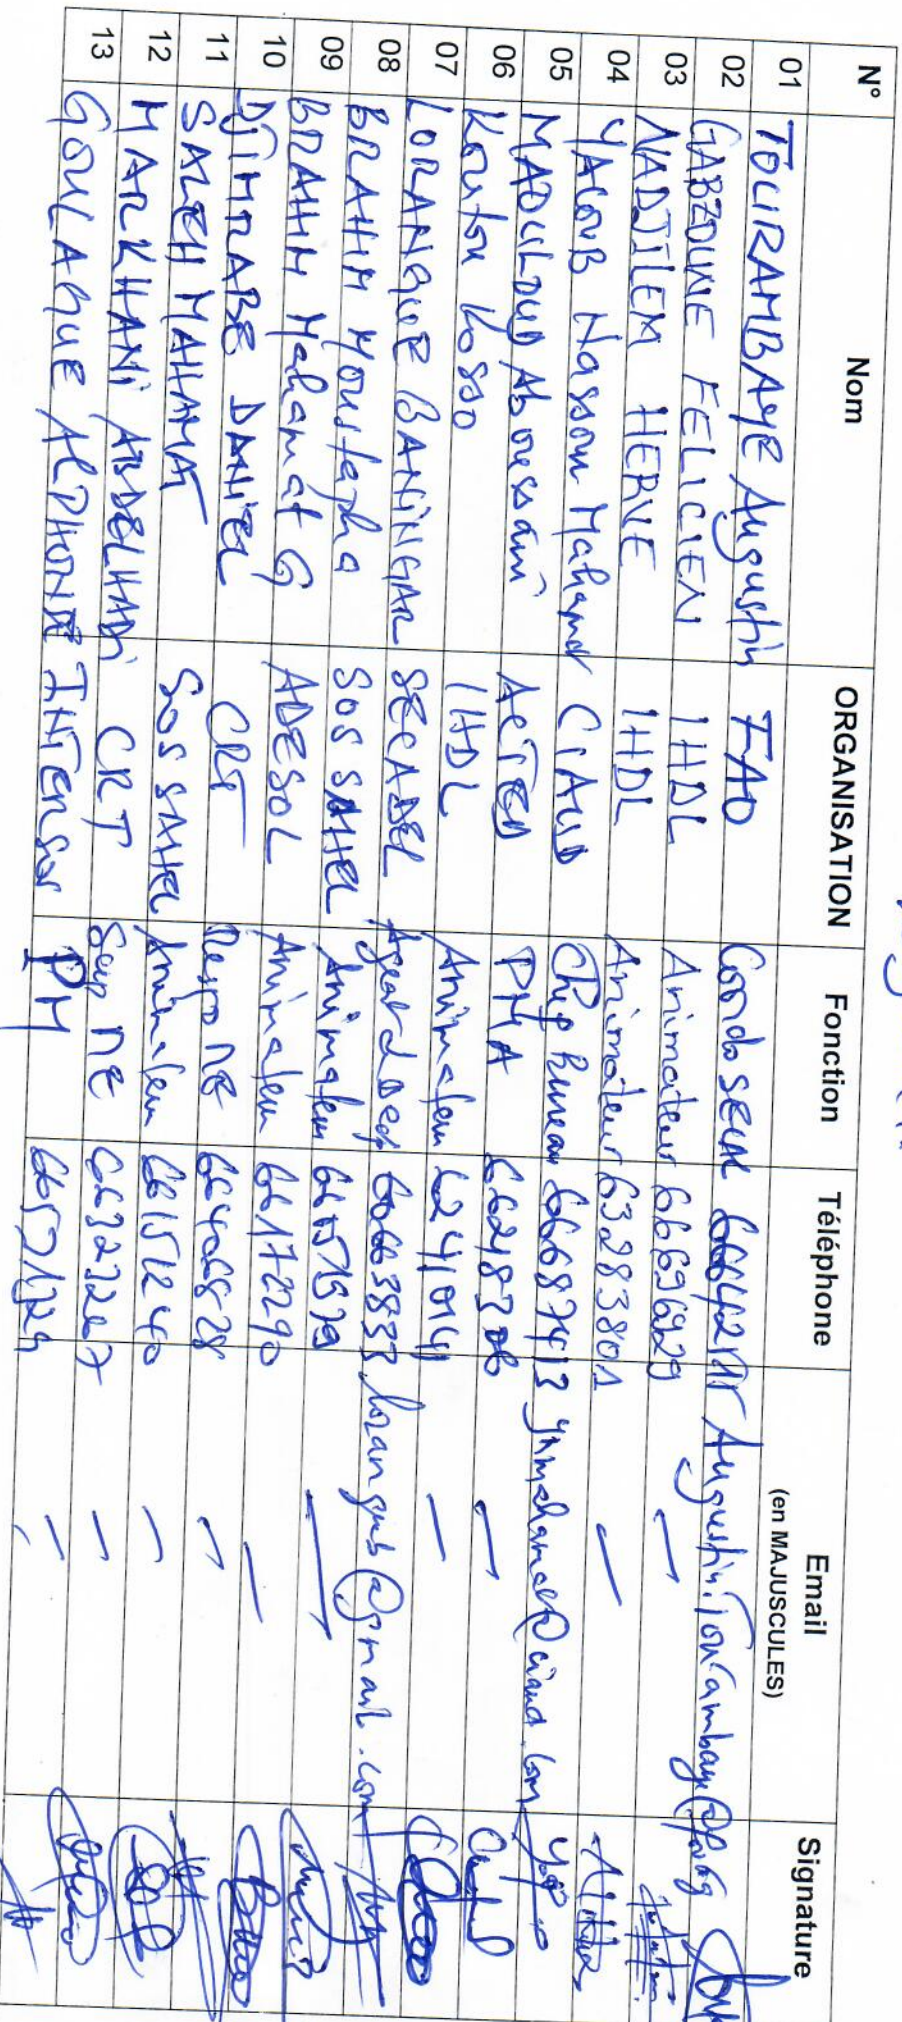 N° Nom ORGANISATION Fonction Téléphone Email (en MAJUSCULES) Signature
01 TOUIRAMBAYE Augustin FAO Cordo SECK Augustin.Touirambaye@fao.org
02 GABZOUNE FELICIEN IHDL Animateur 66696929 —
03 NADJILEM HERVE IHDL Animateur 63283801 —
04 YACOUB Hassan Mahamat CIAUD Chef Bureau 66687413 ynmahamat@ciaud.com
05 MAOULOUD Aboussami ACTED PMA 66218706 —
06 Koutou Kosso IHDL Animateur 62410141 —
07 LORANGUE BANINGAR SECADEL Agent d Dev 66663833 lorangueb@gmail.com
08 BRAHIM Moustapha SOS SAHEL Animateur 66751579 —
09 BRAHIM Mahamat G ADESOL Animateur 66172290 —
10 DJIMRABE DANIEL CRT Respo NE 66406828 —
11 SALEH MAHAMAT SOS SAHEL Animateur 66151240 —
12 MARKHANI ABDELHADI CRT Sup NE 66323207 —
13 GOULAGUE ALPHONSE INTERSOS PM —